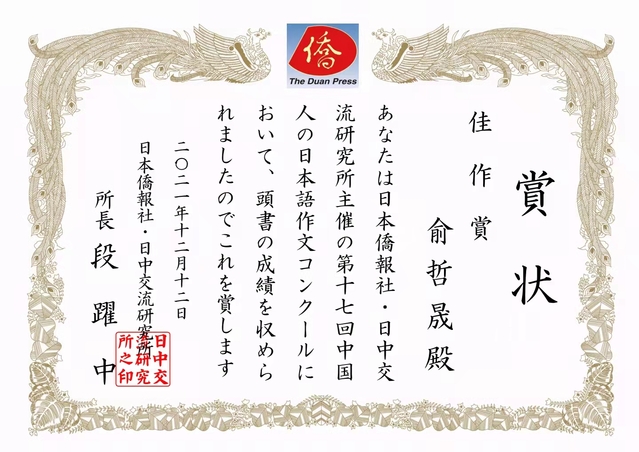 僑
The Duan Press
賞状
佳作賞
俞哲晟殿
あなたは日本僑報社・日中交
流研究所主催の第十七回中国
人の日本語作文コンクールに
おいて、頭書の成績を収めら
れましたのでこれを賞します
二〇二一年十二月十二日
日本僑報社・日中交流研究所
所長段躍中
日中交
流研究
所之印